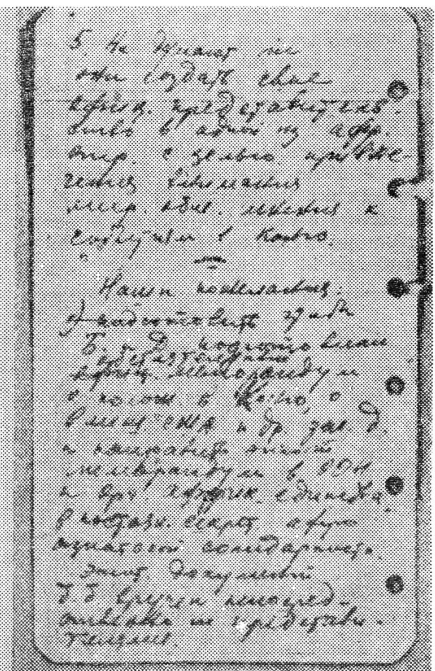 5. Не думают ли
они создать свое
офиц. представитель-
ство в одной из афр.
стр. с целью привле-
чения внимания
мир. общ. мнения к
событиям в Конго.
Наши пожелания:
1) подготовить
Б. и Д. подготовили
меморандум
о полож. в Конго, о
вмеш. США и др. зап. д.
и направить этот
меморандум в ООН
и орг. африк. единства
в постоян. секрт. афро
азиатской солидарности.
Этот документ
т. б. вручен непосред-
ственно их представи-
телями.